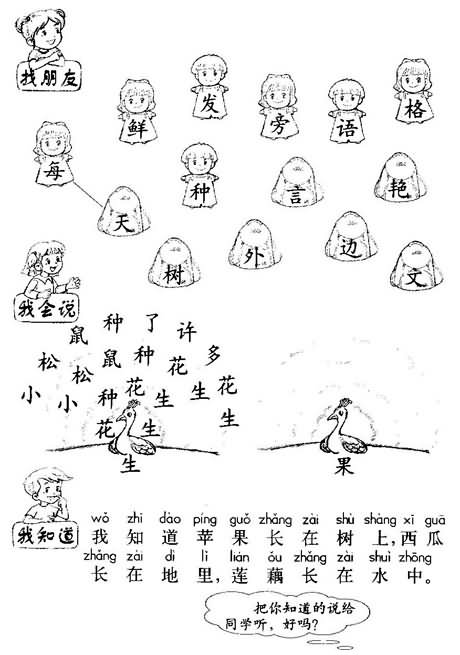 找朋友
鲜 发 旁 语 格
每 种 言 艳
天 树 外 边 文
我会说
鼠 种 了 许
松 松 鼠 种 花 多
小 小 种 花 生 生 花
花 生 生
生 果
我知道
wǒ zhi dào píng guǒ zhǎng zài shù shàng xī guā
我 知 道 苹 果 长 在 树 上,西 瓜
zhǎng zài dì lǐ lián ǒu zhǎng zài shuǐ zhōng
长 在 地 里,莲 藕 长 在 水 中。
把你知道的说给
同学听,好吗?